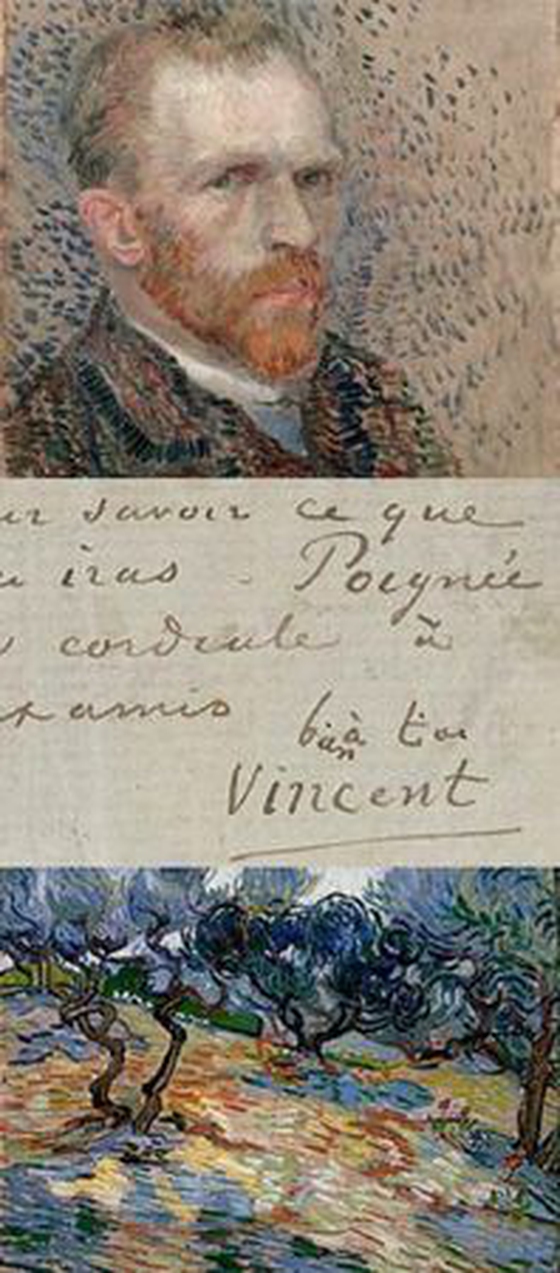 ur savoir ce que
u iras - Poignée
cordiale à
x amis
bien à toi
Vincent